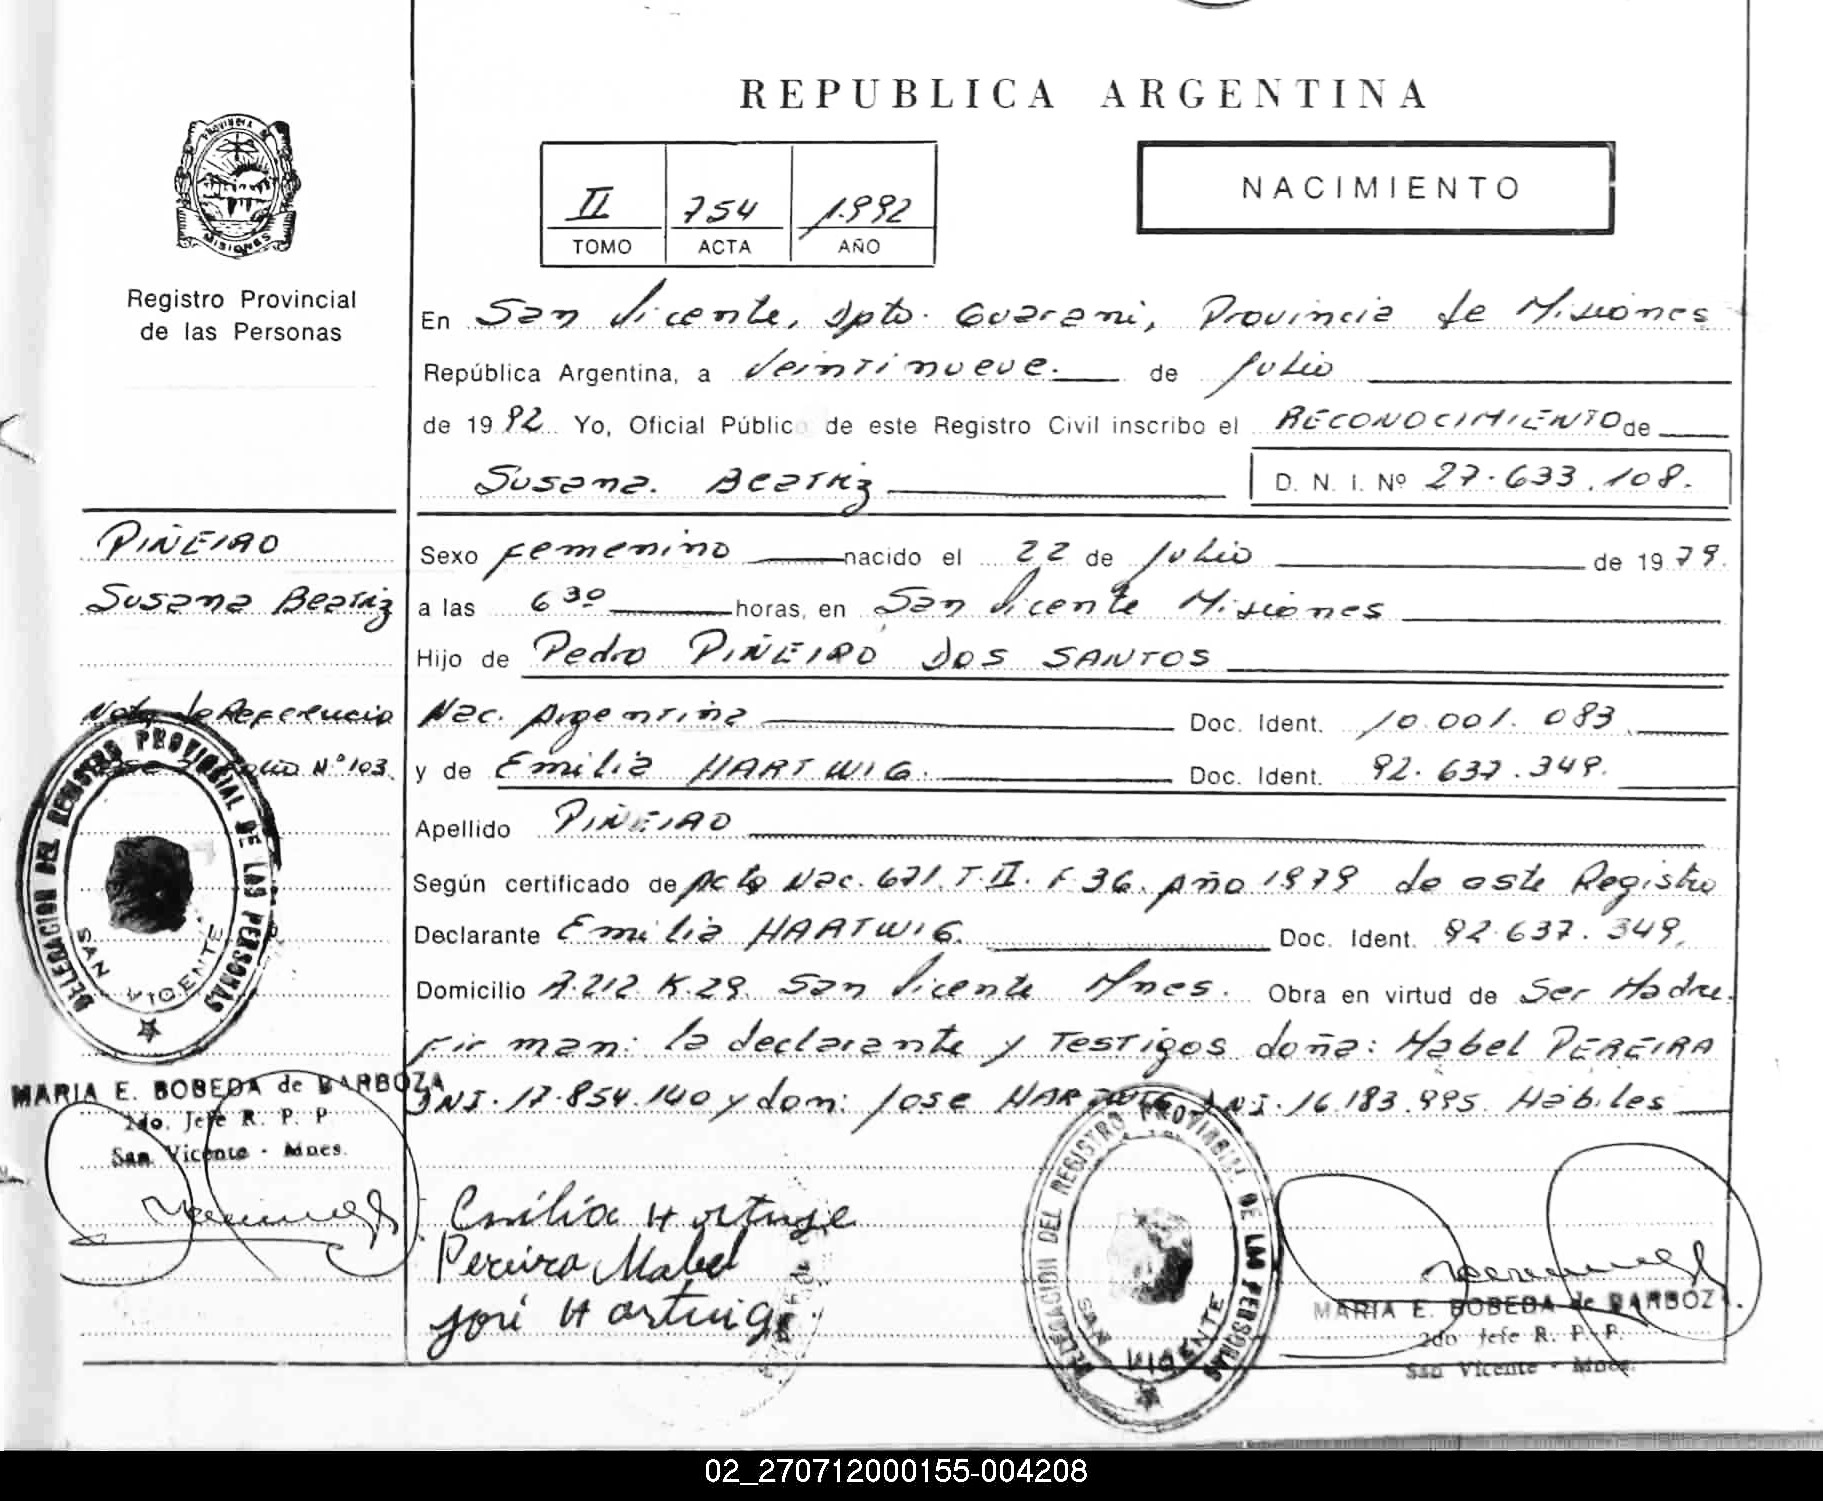 REPUBLICA ARGENTINA
PROVINCIA DE
MISIONES
Registro Provincial
de las Personas
II 754 1.992
TOMO ACTA AÑO
NACIMIENTO
En San Vicente, Dpto. Guarani, Provincia de Misiones
República Argentina, a Veintinueve. de Julio
de 1992 Yo, Oficial Público de este Registro Civil inscribo el RECONOCIMIENTO de
Susana. Beatriz D. N. I. Nº 27.633.108.
PIÑEIRO
Susana Beatriz
Nota de Referencia
Folio Nº 103.
Sexo Femenino nacido el 22 de Julio de 1979.
a las 6 30 horas, en San Vicente Misiones
Hijo de Pedro PIÑEIRO DOS SANTOS
Nac. Argentina Doc. Ident. 10.001.083
y de Emilia HARTWIG. Doc. Ident. 92.637.349.
Apellido PIÑEIRO
Según certificado de Acta Nac. 671. T. II. F 36. Año 1979 de este Registro
Declarante Emilia HARTWIG. Doc. Ident. 92.637.349.
Domicilio A.212 K.29. San Vicente Mnes. Obra en virtud de Ser Madre.
Firman: la declarante y Testigos doña: Mabel PEREIRA
DNI. 17.854.140 y don: Jose HARTWIG DNI. 16.183.995. Hábiles
DELEGACION DEL REGISTRO PROVINCIAL DE LAS PERSONAS
SAN VICENTE
MARIA E. BOBEDA de BARBOZA
2do. Jefe R. P. P.
San Vicente - Mnes.
Emilia Hartwig
Pereira Mabel
José Hartwig
DELEGACION DEL REGISTRO PROVINCIAL DE LAS PERSONAS
SAN VICENTE
MARIA E. BOBEDA de BARBOZ
2do Jefe R. P. P.
San Vicente - Mnes.
02_270712000155-004208